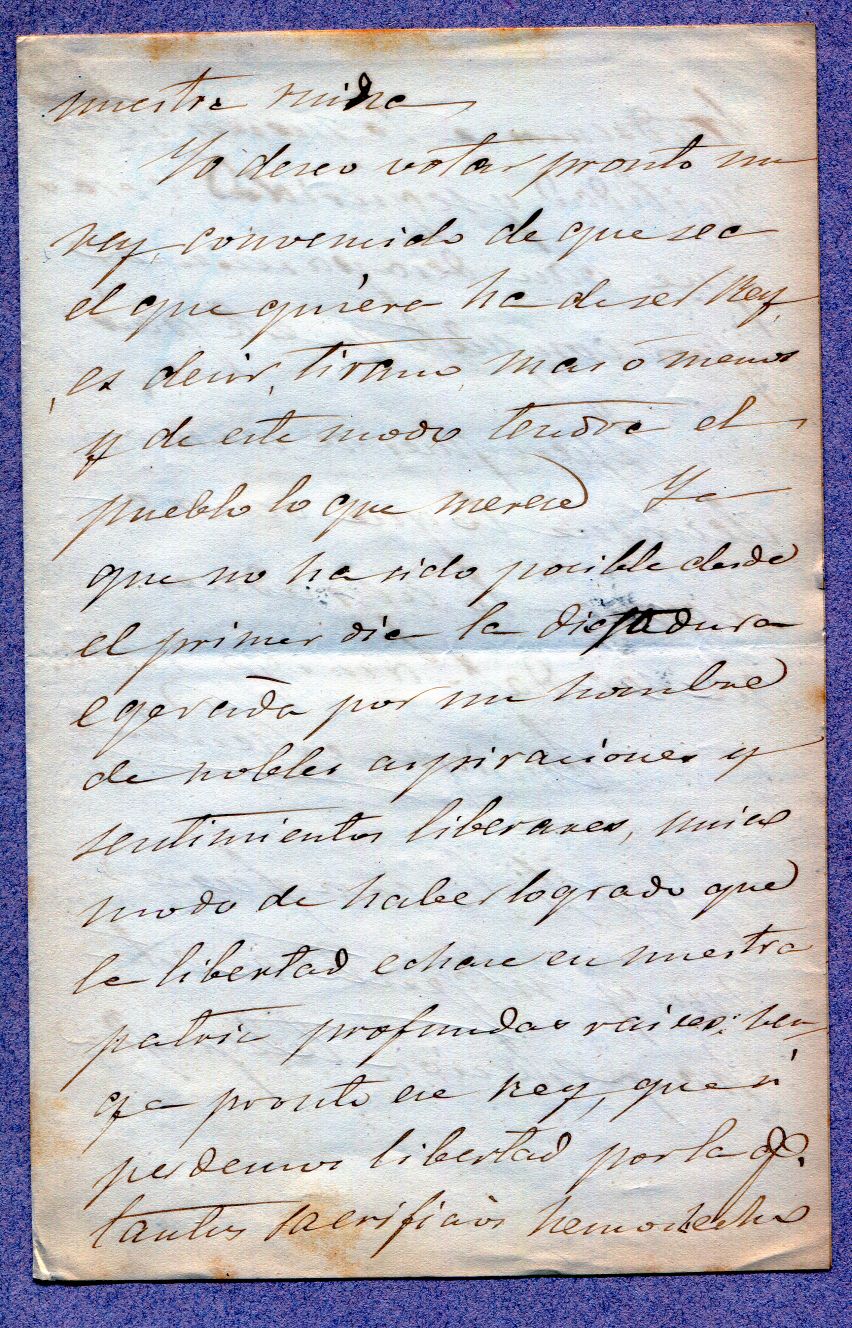 nuestra ruina
Yo deseo votar pronto un
rey, convencido de que sea
el que quiera ha de ser Rey,
es decir, tirano, mas ó menos
y de este modo tendra el
pueblo lo que merece Ya
que no ha sido posible desde
el primer dia la dictadura
egercida por un hombre
de nobles aspiraciones y
sentimientos liberares, unico
modo de haber logrado que
la libertad echase en nuestra
patria profundas raices: ven-
ga pronto ese Rey, que si
perdemos libertad por la q.
tantos sacrificios hemos hecho